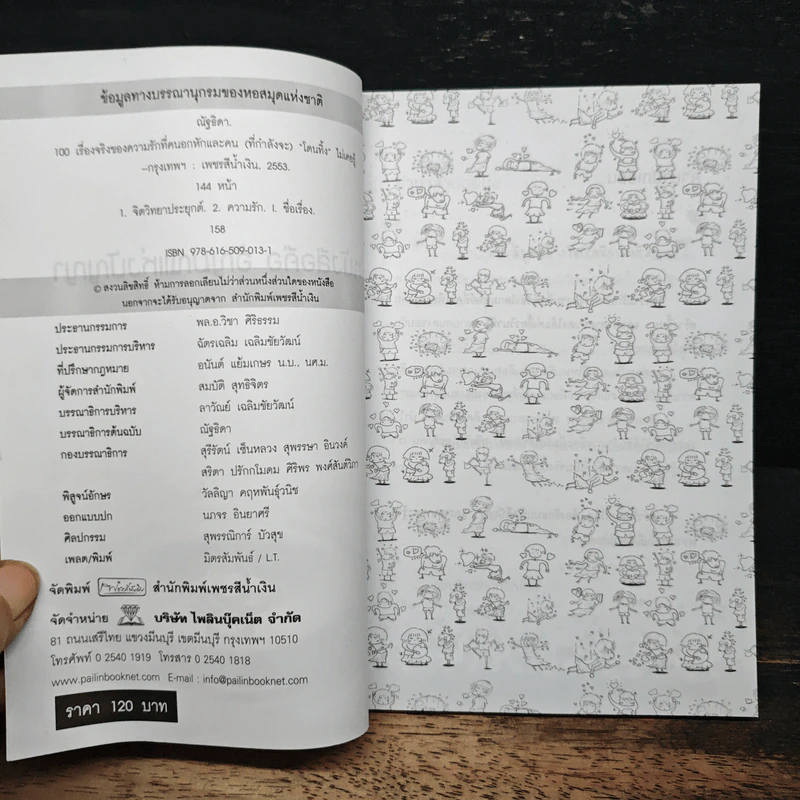 ข้อมูลทางบรรณานุกรมของหอสมุดแห่งชาติ
ณัฐธิดา.
100 เรื่องจริงของความรักที่คนอกหักและคน (ที่กำลังจะ) "โดนทิ้ง" ไม่เคยรู้
–กรุงเทพฯ : เพชรสีน้ำเงิน, 2553.
144 หน้า
1. จิตวิทยาประยุกต์. 2. ความรัก. I. ชื่อเรื่อง.
158
ISBN 978-616-509-013-1
© สงวนลิขสิทธิ์ ห้ามการลอกเลียนไม่ว่าส่วนหนึ่งส่วนใดของหนังสือ
นอกจากจะได้รับอนุญาตจาก สำนักพิมพ์เพชรสีน้ำเงิน
ประธานกรรมการ พล.อ.วิชา ศิริธรรม
ประธานกรรมการบริหาร ฉัตรเฉลิม เฉลิมชัยวัฒน์
ที่ปรึกษากฎหมาย อนันต์ แย้มเกษร น.บ., นศ.ม.
ผู้จัดการสำนักพิมพ์ สมบัติ สุทธิจิตร
บรรณาธิการบริหาร ลาวัณย์ เฉลิมชัยวัฒน์
บรรณาธิการต้นฉบับ ณัฐธิดา
กองบรรณาธิการ สุรีรัตน์ เซ็นหลวง สุพรรษา อินวงค์
สริตา ปรักกโมดม ศิริพร พงศ์สันติวิภา
พิสูจน์อักษร วัลลิญา คฤหพันธุ์วนิช
ออกแบบปก นภจร อินยาศรี
ศิลปกรรม สุพรรณิการ์ บัวสุข
เพลต/พิมพ์ มิตรสัมพันธ์ / L.T.
จัดพิมพ์ สำนักพิมพ์เพชรสีน้ำเงิน
จัดจำหน่าย บริษัท ไพลินบุ๊คเน็ต จำกัด
81 ถนนเสรีไทย แขวงมีนบุรี เขตมีนบุรี กรุงเทพฯ 10510
โทรศัพท์ 0 2540 1919 โทรสาร 0 2540 1818
www.pailinbooknet.com E-mail : info@pailinbooknet.com
ราคา 120 บาท